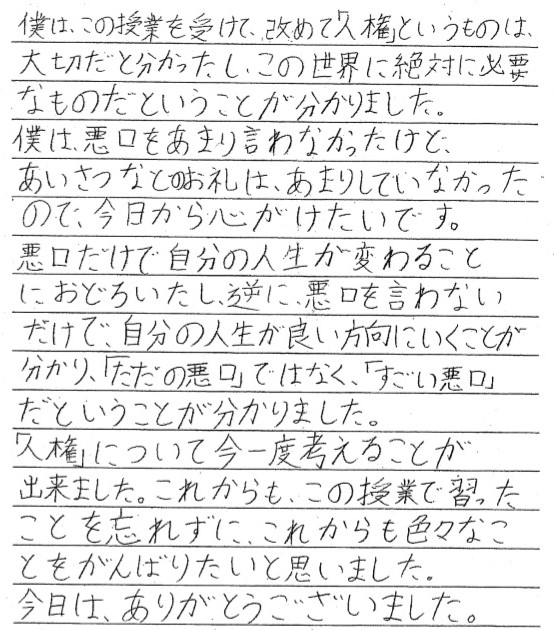 僕は、この授業を受けて、改めて「人権」というものは、
大切だと分かったし、この世界に絶対に必要
なものだということが分かりました。
僕は、悪口をあまり言わなかったけど、
あいさつなどのお礼は、あまりしていなかった
ので、今日から心がけたいです。
悪口だけで自分の人生が変わること
におどろいたし、逆に、悪口を言わない
だけで、自分の人生が良い方向にいくことが
分かり、「ただの悪口」ではなく、「すごい悪口」
だということが分かりました。
「人権」について今一度考えることが
出来ました。これからも、この授業で習った
ことを忘れずに、これからも色々なこ
とをがんばりたいと思いました。
今日は、ありがとうございました。